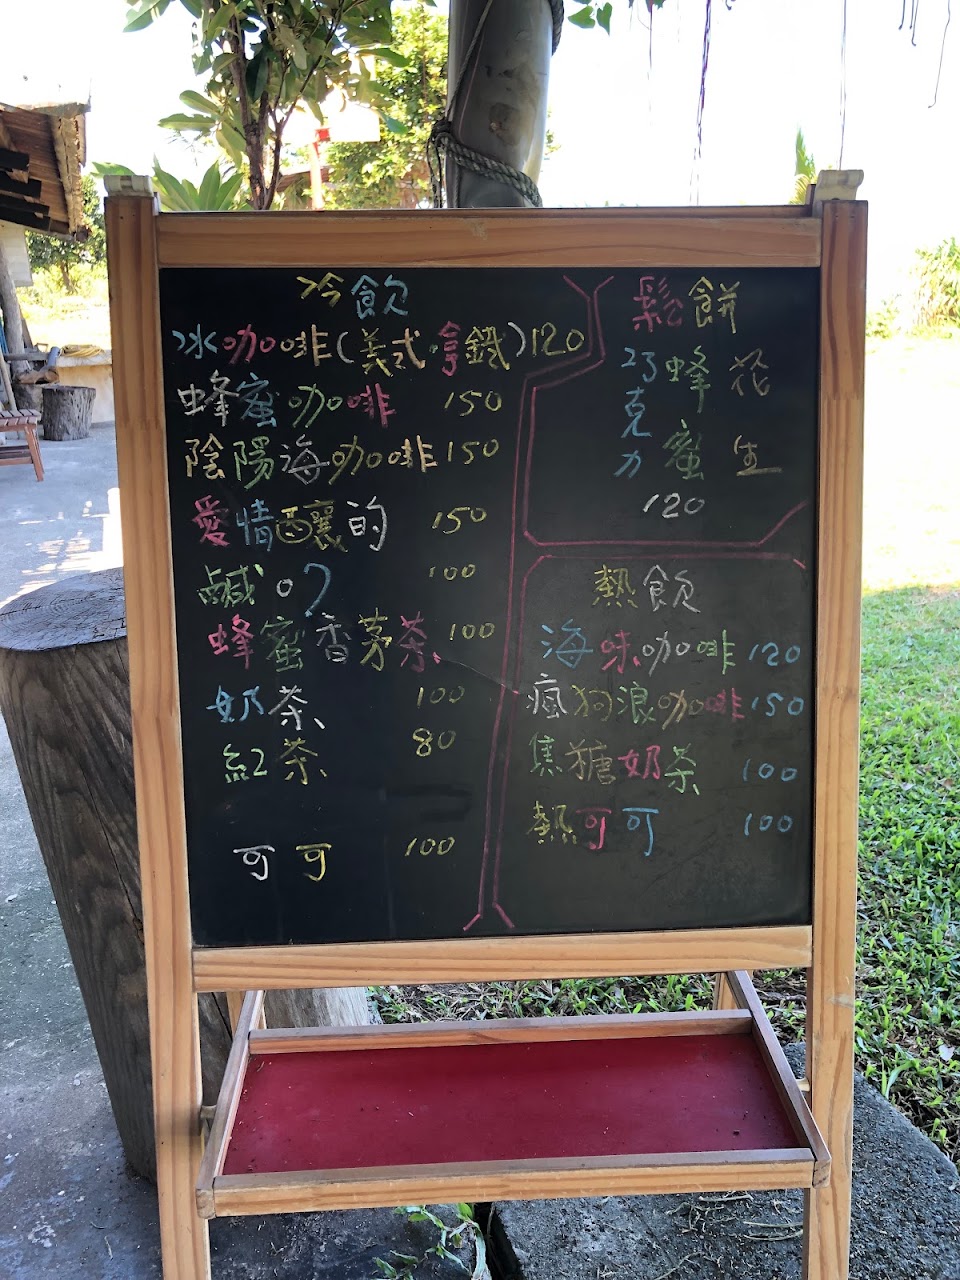 冷飲
冰咖啡(義式.拿鐵)120
蜂蜜咖啡 150
陰陽海咖啡 150
愛情釀的 150
鹹ㄉㄡˊ 100
蜂蜜香茅茶 100
奶茶 100
紅茶 80
可可 100
鬆餅
巧克力
蜂蜜
花生
120
熱飲
海味咖啡 120
瘋狗浪咖啡 150
焦糖奶茶 100
熱可可 100